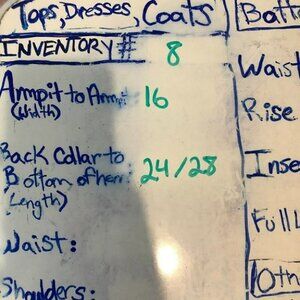 Tops, Dresses, Coats
INVENTORY # 8
Armpit to Armpit 16
(Width)
Back Collar to 24/28
Bottom of hem:
(Length)
Waist:
Shoulders:
Waist
Rise